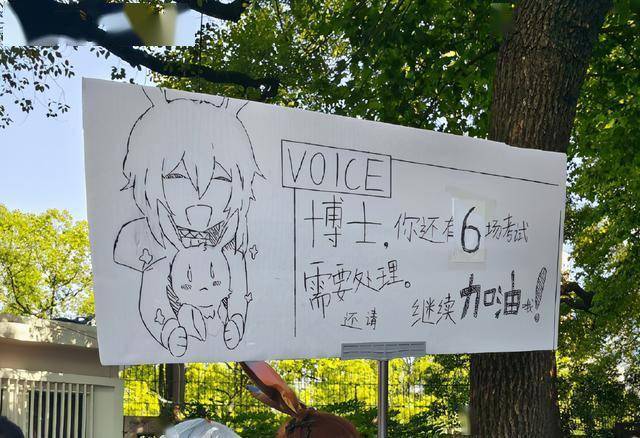 VOICE
博士，你还有6场考试
需要处理。
还请 继续加油哦！